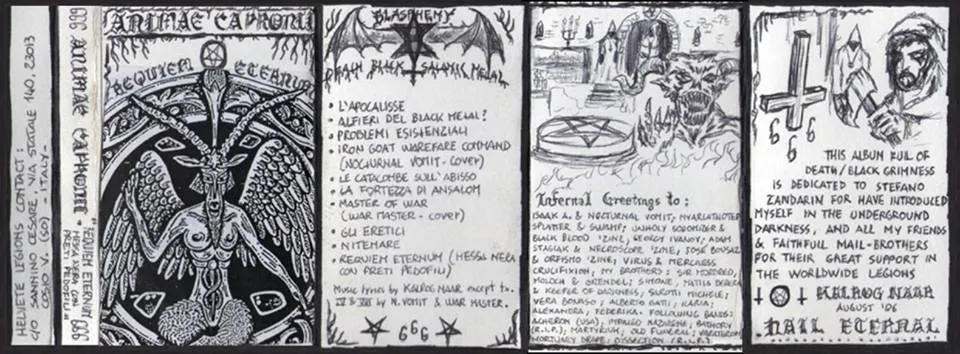 HELVETE LEGIONS CONTACT:
C/O SANNINO CESARE, VIA STATALE 140, 23013
COSIO V. (SO) - ITALY-
666 ANIMAE CAPRONII 666
"REQUIEM ETERNUM
MESSA NERA CON
PRETI PEDOFILI"
ANIMAE CAPRONII
REQUIEM ETERNUM
BLASPHEMY
DEATH BLACK SATANIC METAL
• L'APOCALISSE
• ALFIERI DEL BLACK METAL?
• PROBLEMI ESISTENZIALI
• IRON GOAT WAREFARE COMMAND
(NOCTURNAL VOMIT - COVER)
• LE CATACOMBE SULL'ABISSO
• LA FORTEZZA DI ANSALOM
• MASTER OF WAR
(WAR MASTER - COVER)
• GLI ERETICI
• NITEMARE
• REQUIEM ETERNUM (MESSA NERA
CON PRETI PEDOFILI)
Music lyrics by KALROG NAAR except to.
IV & VII by N. VOMIT & WAR MASTER.
666
Infernal Greetings to:
ISAAK A. & NOCTURNAL VOMIT, NYARLATHOTEP
SPLATTER & SWAMP; UNHOLY SODOMIZER &
BLACK BLOOD 'ZINE, GEORGY IVANOV, ADAM
STASIAK & NECROSCOPE 'ZINE, JOSÉ
& ORFISMO 'ZINE, VIRUS & MERCILESS
CRUCIFIXION, MY BROTHERS: SIR MORDRED,
MOLOCH & GRENDEL; SIMONE,
& KEEPER OF DARKNESS, MICHELE;
VERA BONASO; ALBERTO GATTI; KATIA;
ALEXANDRA, FEDERIKA. FOLLOWING BANDS:
ACHERON (USA), IMPALED NAZARENE, BATHORY
(R.I.P.), MARTYRIUM, OLD FUNERAL,
MORTUARY DRAPE, DISSECTION (R.I.P.).
666
THIS ALBUM FULL OF
DEATH/BLACK GRIMNESS
IS DEDICATED TO STEFANO
ZANDARIN FOR HAVE INTRODUCED
MYSELF IN THE UNDERGROUND
DARKNESS, AND ALL MY FRIENDS
& FAITHFULL MAIL-BROTHERS
FOR THEIR GREAT SUPPORT IN
THE WORLDWIDE LEGIONS
KALROG NAAR
AUGUST '06
HAIL ETERNAL